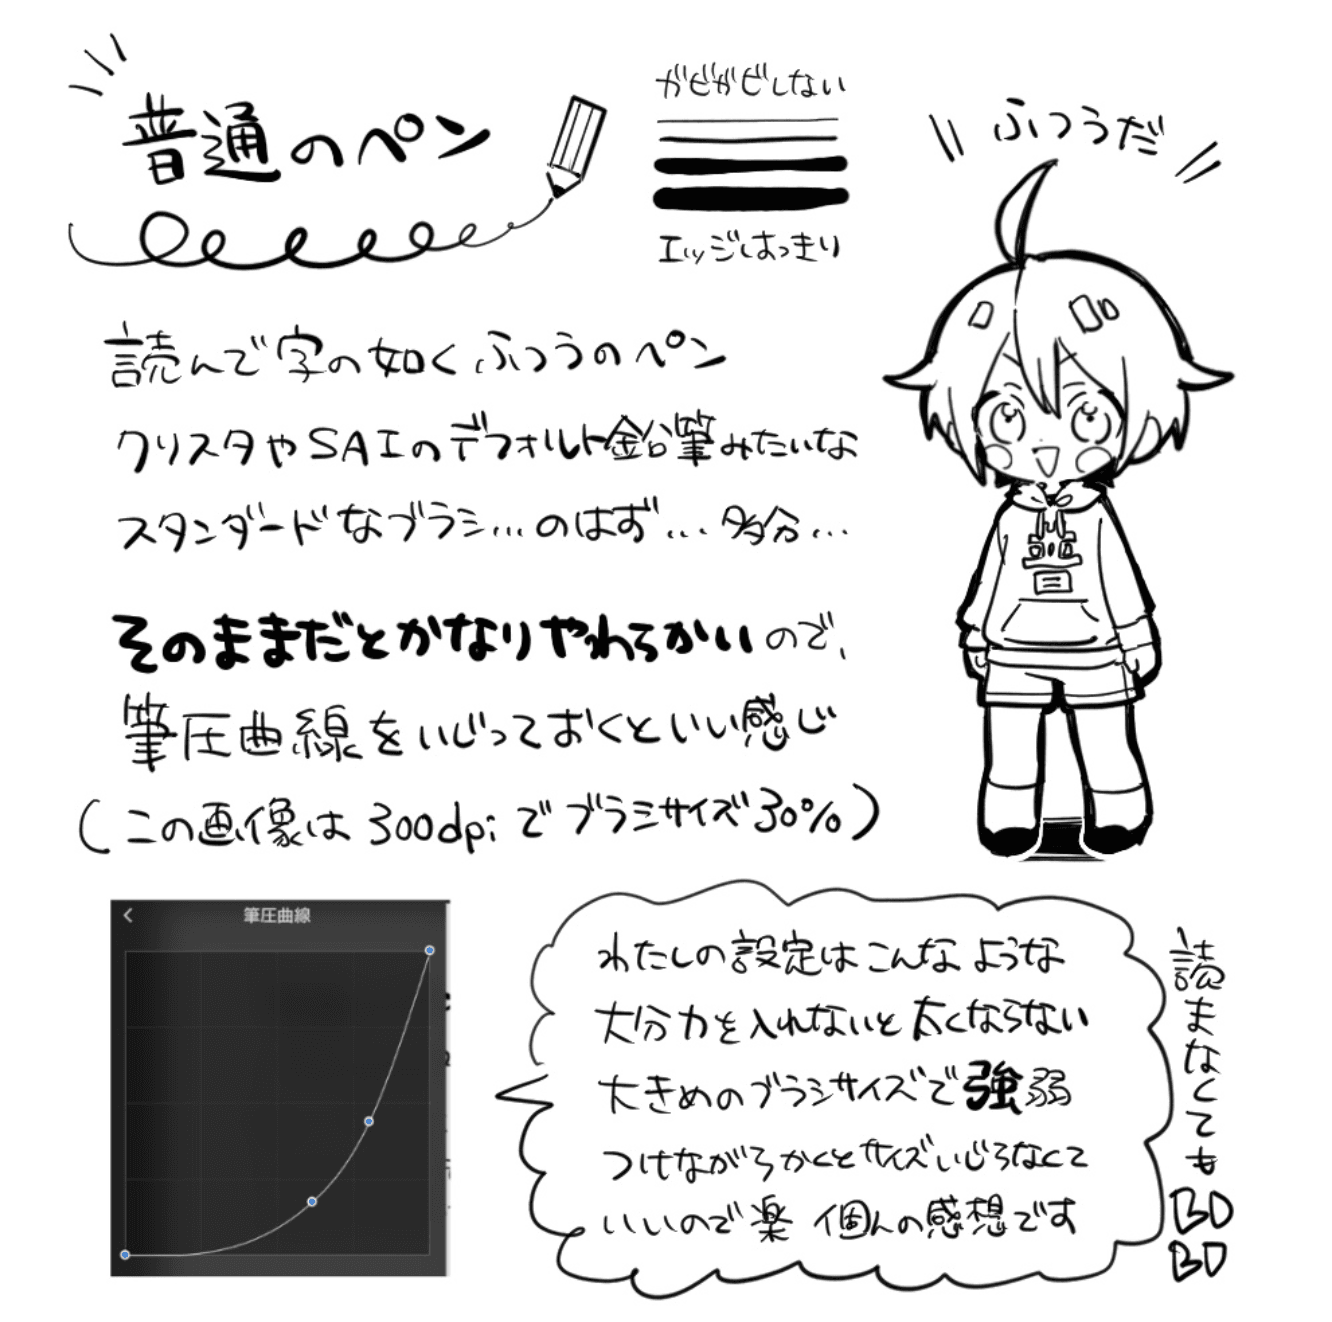 普通のペン
ガビガビしない
エッジはっきり
ふつうだ
普
読んで字の如くふつうのペン
クリスタやSAIのデフォルト鉛筆みたいな
スタンダードなブラシ…のはず…多分…
そのままだとかなりやわらかいので、
筆圧曲線をいじっておくといい感じ
(この画像は300dpiでブラシサイズ30%)
筆圧曲線
わたしの設定はこんなような
大分力を入れないと太くならない
大きめのブラシサイズで強弱
つけながらかくとサイズいじらなくて
いいので楽 個人の感想です
読まなくても